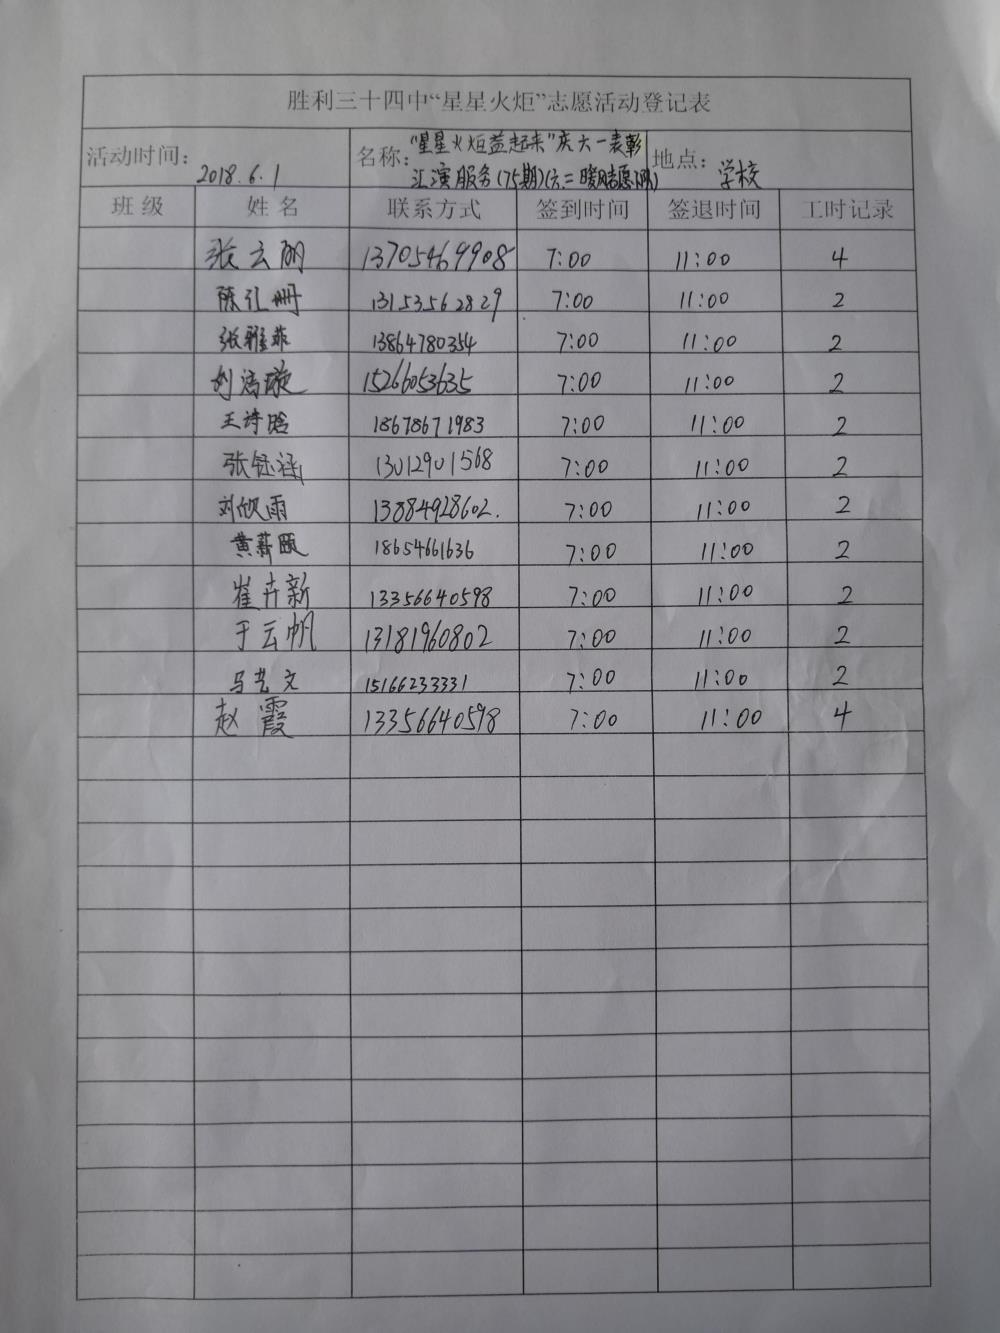 胜利三十四中“星星火炬”志愿活动登记表
活动时间： 2018.6.1 名称： “星星火炬益起来”庆六一表彰 地点： 学校
汇演服务(75期)(六二暖晴志愿队)
班级 姓名 联系方式 签到时间 签退时间 工时记录
张云丽 13705469908 7:00 11:00 4
陈弘珊 13153562829 7:00 11:00 2
张雅菲 13864780354 7:00 11:00 2
刘涓璇 15266053635 7:00 11:00 2
王诗晗 18678671983 7:00 11:00 2
张钰涵 13012901568 7:00 11:00 2
刘欣雨 13884928602. 7:00 11:00 2
黄薪颐 18654661636 7:00 11:00 2
崔卉新 13356640598 7:00 11:00 2
于云帆 13181960802 7:00 11:00 2
马艺文 15166233331 7:00 11:00 2
赵霞 13356640598 7:00 11:00 4